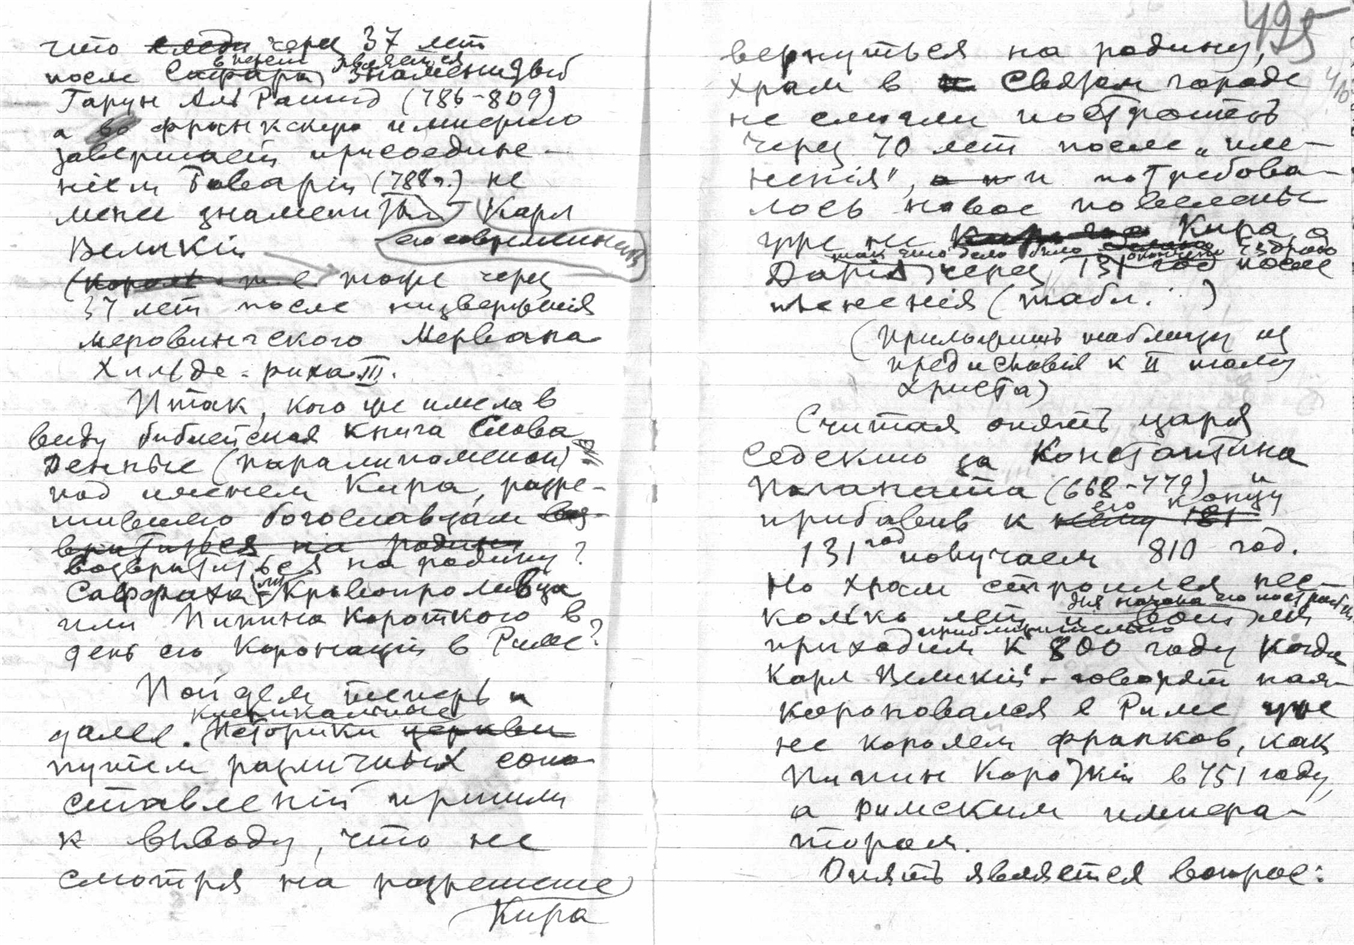 что через 37 лет
после Саффара в песни является знаменитый
Гарун Аль Рашид (786-809)
а во франкскую империю
завершает присоедине-
нием Баваріи (788 г.) не
менее знаменитый Карл
Великій его современник
(Король т.е. тоже через
37 лет после низверженія
меровингского Мервана
Хильде-рика III.
Итак, кого же имела в
виду библейская книга Слова
Денные (паралипоменон)
под именем Кира, разре-
шившаго богославцам воз-
вратиться на родину
возвратиться на родину?
Саффаха ли - Кровопроливца
или Пипина Короткого в
день его Коронаціи в Риме?
Пойдем теперь и
далее. Клерикальные историки церкви
путем различных сопо-
ставленій пришли
к выводу, что не
смотря на разрешение
Кира
495
вернуться на родину,
храм в Святом городе
не смогли построить
через 70 лет после „пле-
ненія", а и потребова-
лось новое повеленье
уже не Кира, а
Дарія так что дело было окончено
через 131 год после
плененія (табл. )
(Приложить таблицу из
предисловія к II тому
Христа)
Считая опять царя
Седекию за Константина
Погоната (668-779) и
прибавив к его концу
131 год получаем 810 год.
Но храм строился нес-
колько лет и для начала его постройки мы
приходим приблизительно к 800 году когда
Карл Великій - говорят нам -
короновался в Риме уже
не королем франков, как
Пипин Короткій в 751 году,
а римским импера-
тором.
Опять является вопрос: